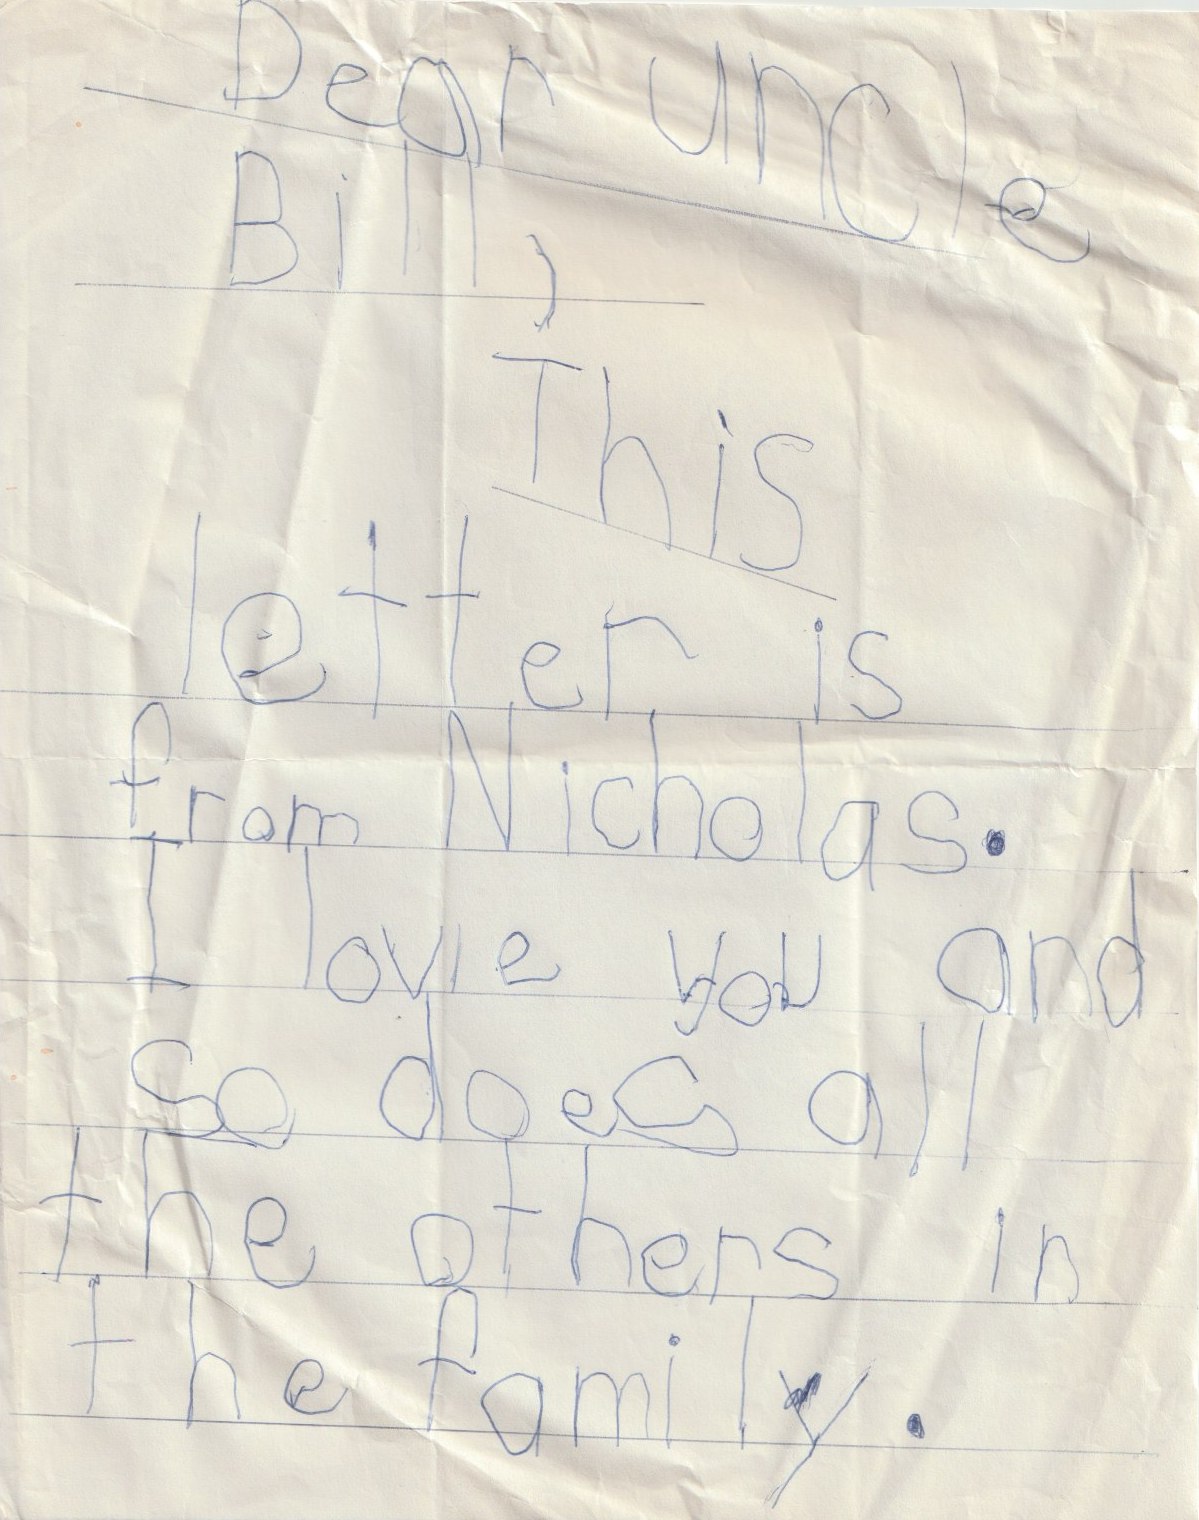 Dear uncle
Bill,
This
letter is
from Nicholas.
I lovie you and
so does all
the others in
the family.